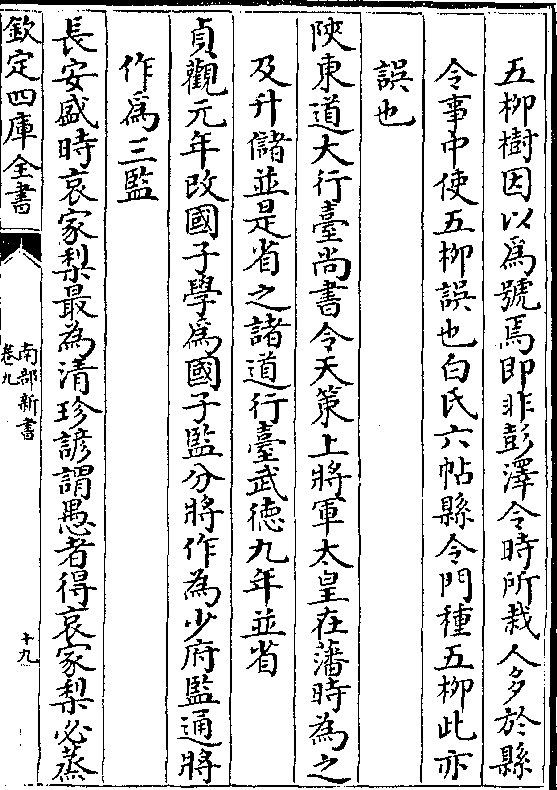 五柳樹因以為號焉即非彭澤令時所栽人多於縣
令事中使五柳誤也白氏六帖縣令門種五柳此亦
誤也
陜東道大行臺尚書令天策上將軍太皇在藩時為之
及升儲並是省之諸道行臺武德九年並省
貞觀元年改國子學為國子監分將作為少府監通將
作為三監
長安盛時哀家梨最為清珍諺謂愚者得哀家梨必蒸
欽定四庫全書
南部新書
卷九
十九